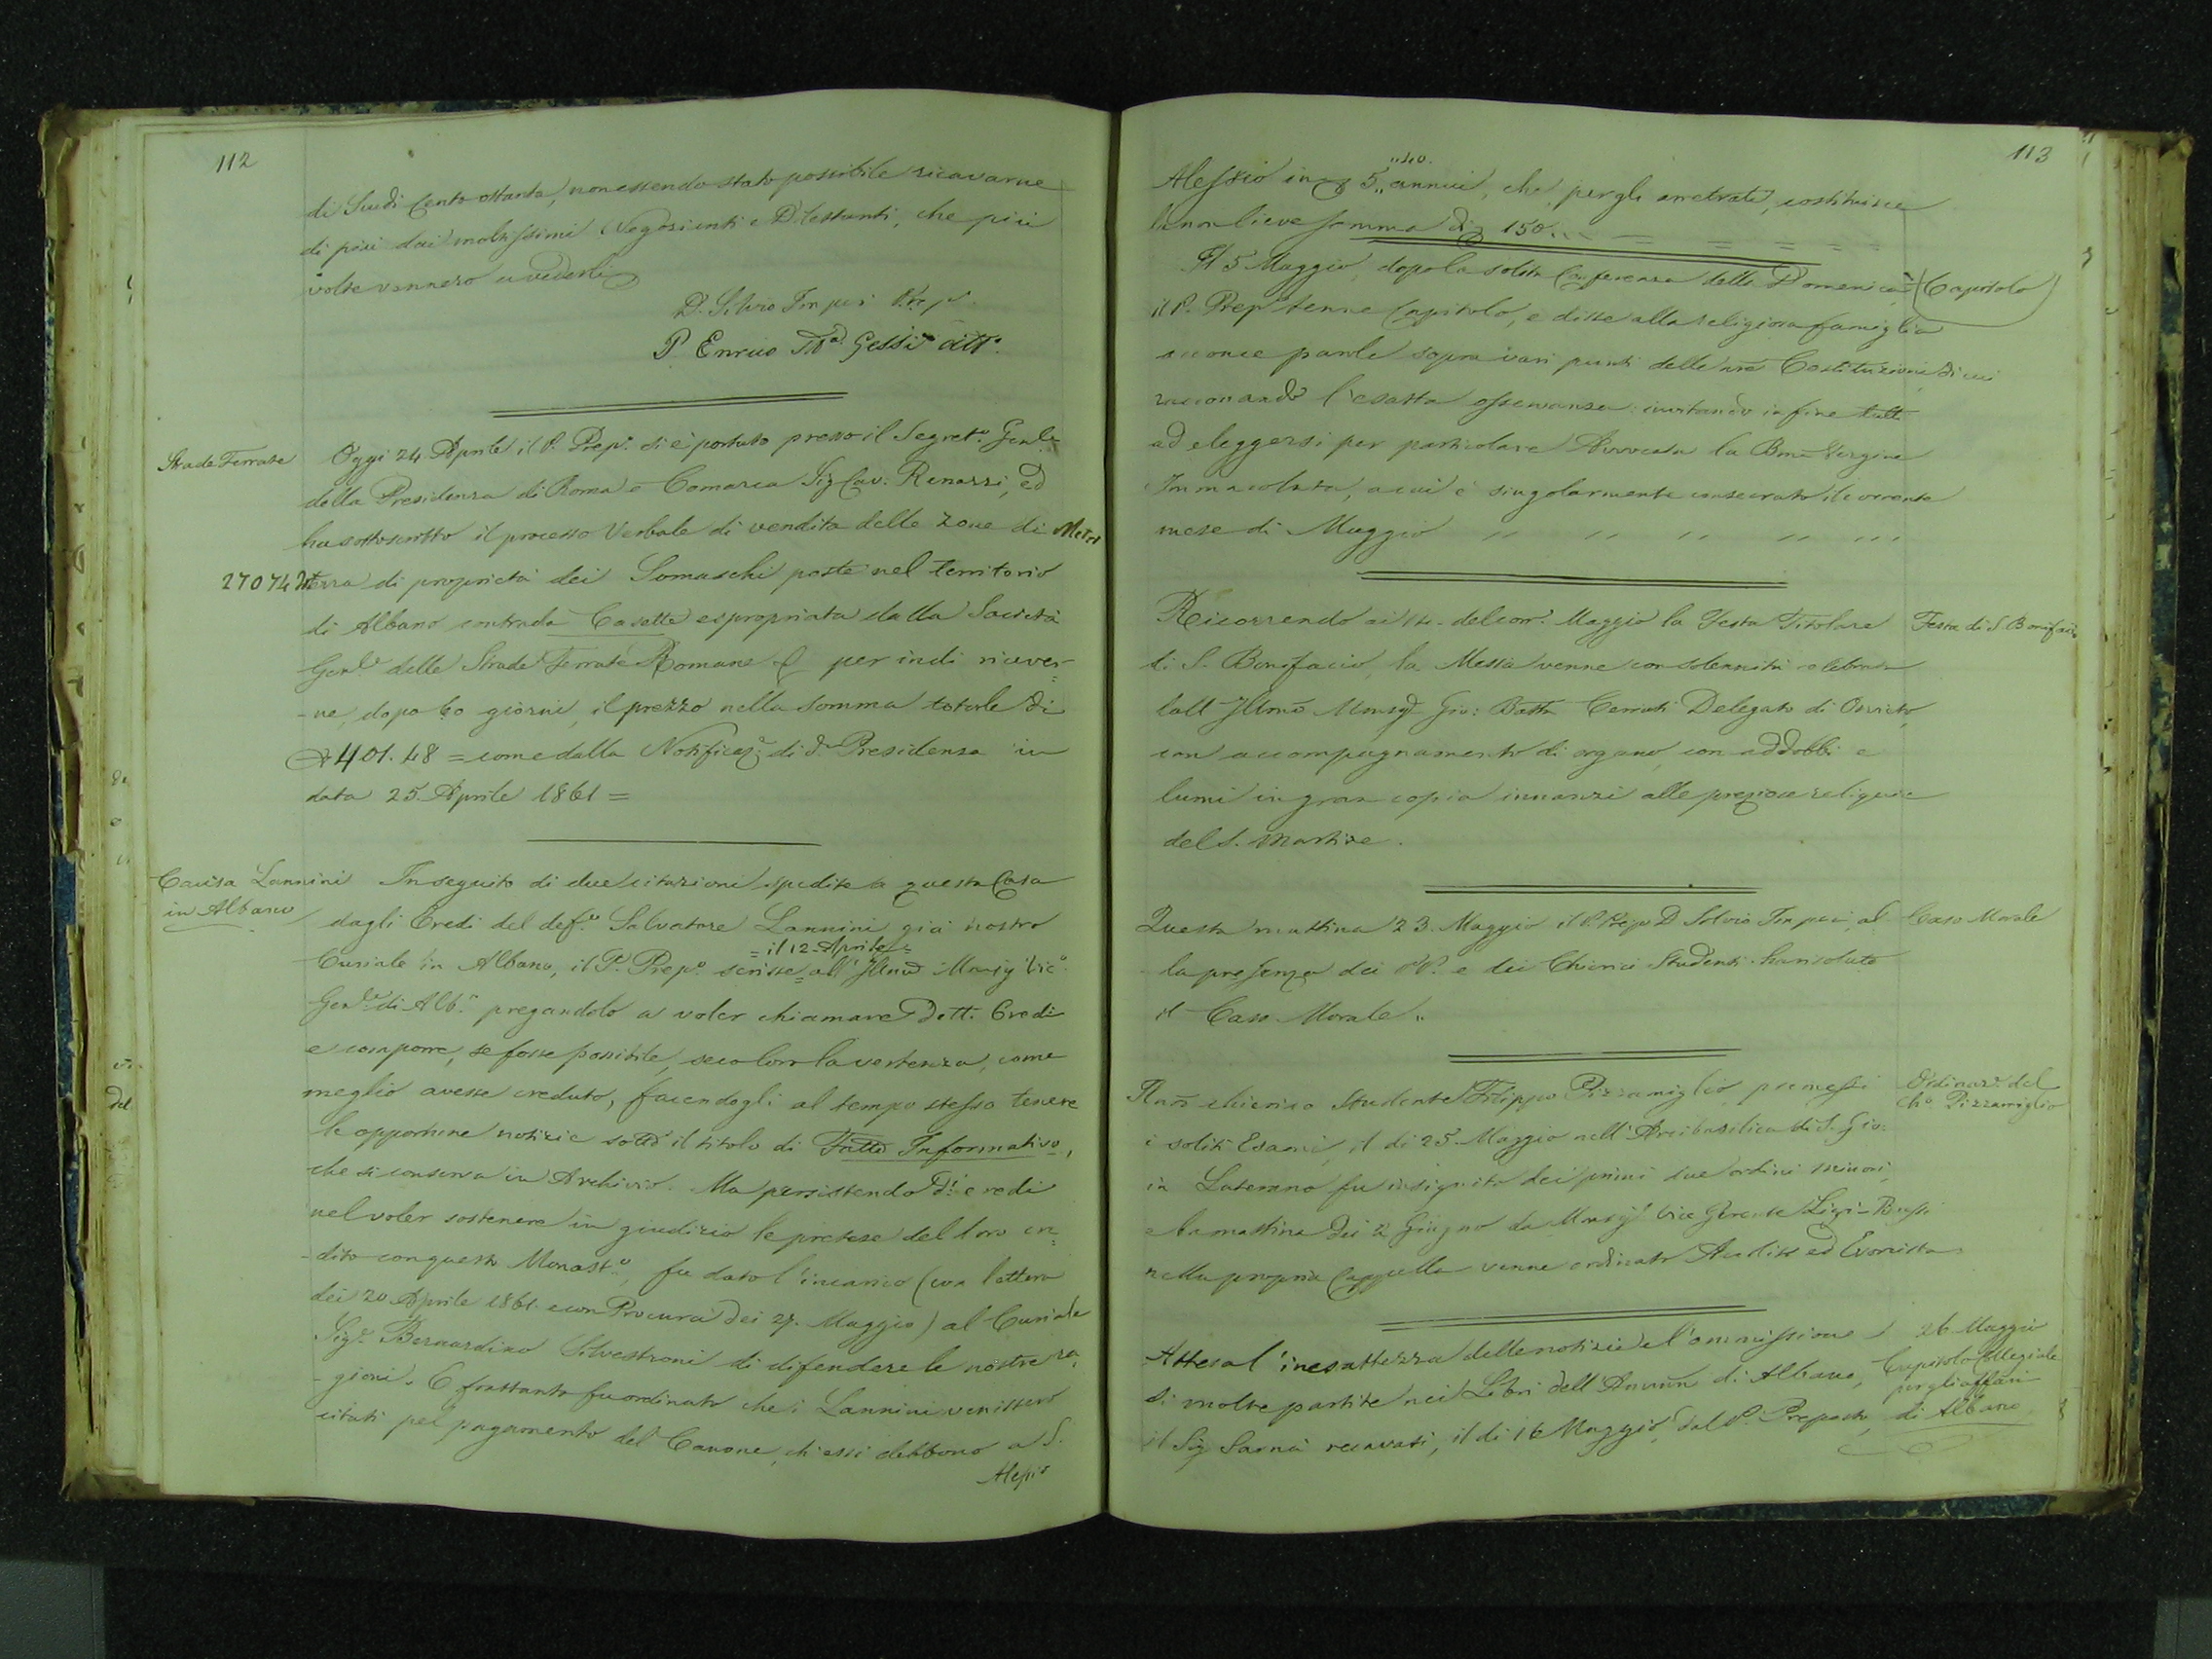 112
di Scudi Cento ottanta, non essendo stato possibile ricavarne
di più dai moltissimi Negozianti e Dilettanti, che più
volte vennero a vederli
D. Silvio Imperi Prep.
P. Enrico Ma. Gessi att.
Strade Ferrate
Oggi 24 Aprile il P. Prep.o si è portato presso il Segret.o Gen.le
della Presidenza di Roma e Comarca Sig. Cav. Renazzi, ed
ha sottoscritto il processo Verbale di vendita delle zone di Metri
27074 terra di proprietà dei Somaschi poste nel territorio
di Albano contrada Casette espropriata dalla Società
Gen.le delle Strade Ferrate Romane per indi ricever-
-ne, dopo 60 giorni, il prezzo nella somma totale di
401.48 = come dalla Notificaz.e di d.a Presidenza in
data 25. Aprile 1861 =
Causa Lannini
in Albano
In seguito di due citazioni spedite a questa Casa
dagli Eredi del def.o Salvatore Lannini già nostro
= il 12 Aprile =
Curiale in Albano, il P. Prep.o scrisse = all' Illmo Monsig Vic.o
Gen.le di Alb.o pregandolo a voler chiamare dett. Eredi
e comporre, se fosse possibile, seco loro la vertenza, come
meglio avesse creduto, facendogli al tempo stesso tenere
le opportune notizie sotto il titolo di Fatto Informativo,
che si conserva in Archivio. Ma persistendo d.i eredi
nel voler sostenere in giudizio le pretese del loro cre-
-dito con questo Monast.o, fu dato l'incarico (con lettera
dei 20 Aprile 1861 e con Procura dei 27. Maggio) al Curiale
Sig.r Bernardino Silvestroni di difendere le nostre ra-
-gioni. E frattanto fu ordinato che i Lannini venissero
citati pel pagamento del Canone, ch'essi debbono a S.
Alessio
113
Alessio in 5,, annui, che, per gli arretrati, costituisce
la non lieve somma di 150.
Il 5 Maggio, dopo la solita Conferenza della Domenica,
(Capitolo)
il P. Prep.o tenne Capitolo, e disse alla religiosa famiglia
acconce parole sopra vari punti delle nre Costituzioni, di cui
raccomandò l'esatta osservanza: invitando in fine tutti
ad eleggersi per particolare Avvocata la Bma Vergine
Immacolata, a cui è singolarmente consecrato il corrente
mese di Maggio
Ricorrendo ai 14. del corr. Maggio la Festa Titolare
Festa di S. Bonifacio
di S. Bonifacio, la Messa venne con solennità celebrata
dall' Illmo Monsig Gio: Batta Cerruti Delegato di Orvieto,
con accompagnamento di organo, con addobbi e
lumi in gran copia innanzi alle preziose reliquie
del S. Martire.
Questa mattina 23. Maggio il P. Prep.o D. Silvio Imperi, al-
Caso Morale
la presenza dei PP. e dei Chierici Studenti ha risoluto
il Caso Morale.
Il nro chierico Studente Filippo Pizzamiglio, premessi
Ordinaz.e del
Ch.o Pizzamiglio
i soliti Esami, il dì 25. Maggio nell' Arcibasilica di S. Gio.
in Laterano fu insignito dei primi due ordini minori,
e la mattina dei 2 Giugno da Monsig Vice Gerente Ligi-Bussi
nella propria Cappella venne ordinato Acolito ed Esorcista
Attesa l'inesattezza delle notizie e l'ommissione
26 Maggio
Capitolo Collegiale
per gli affari
di Albano
di molte partite nei Libri dell' Ammin di Albano,
il Sig Sarna recavasi, il dì 16 Maggio, dal P. Preposto,